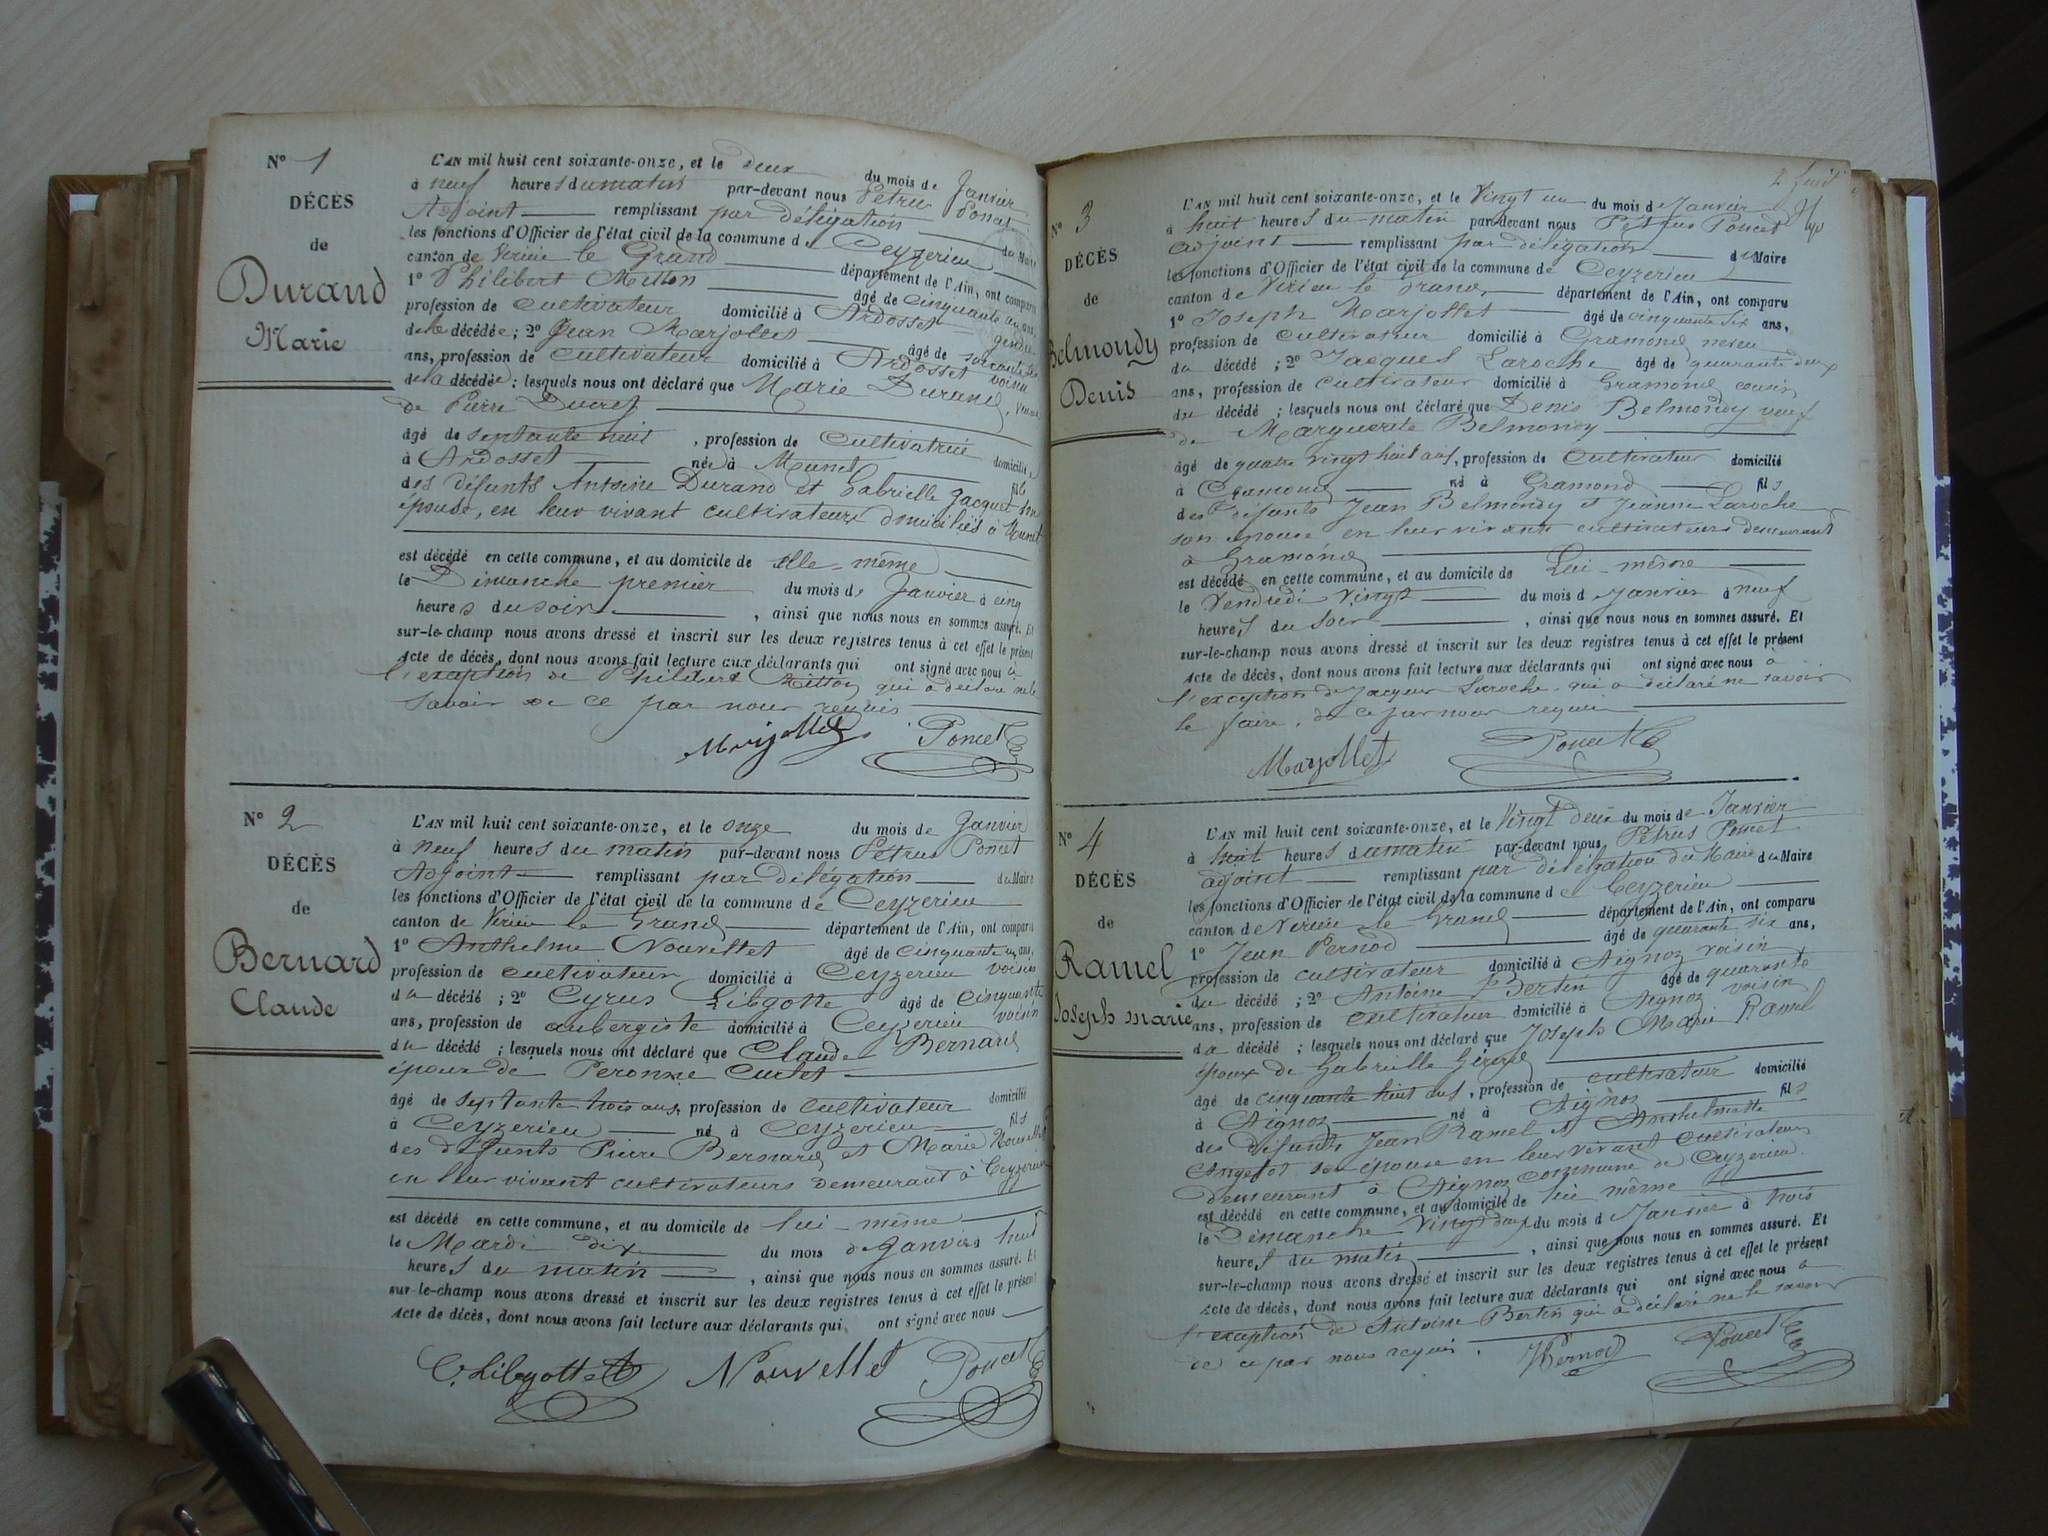 N° 1
DÉCÈS
de
Durand
Marie
L'AN mil huit cent soixante-onze, et le deux du mois de Janvier
à neuf heures du matin par-devant nous Pétrus Poncet
Adjoint remplissant par délégation du Maire
les fonctions d'Officier de l'état civil de la commune de Ceyzerieu
canton de Virieu le Grand département de l'Ain, ont comparu
1° Philibert Milton âgé de cinquante un ans,
profession de cultivateur domicilié à Ardosset gendre
de la décédée ; 2° Jean Marjollet âgé de soixante
ans, profession de cultivateur domicilié à Ardosset voisin
de la décédée ; lesquels nous ont déclaré que Marie Durand, veuve
de Pierre Ducret
âgé de septante neuf , profession de cultivatrice domicilié
à Ardosset née à Munet fille
des défunts Antoine Durand et Gabrielle Jacquet son
épouse, en leur vivant cultivateurs domiciliés à Munet
est décédé en cette commune, et au domicile de elle-même
le Dimanche premier du mois de Janvier à cinq
heures du soir , ainsi que nous nous en sommes assuré. Et
sur-le-champ nous avons dressé et inscrit sur les deux registres tenus à cet effet le présent
Acte de décès, dont nous avons fait lecture aux déclarants qui ont signé avec nous à
l'exception de Philibert Milton qui a déclaré ne le
savoir de ce par nous requis
Marjollet Poncet
N° 2
DÉCÈS
de
Bernard
Claude
L'AN mil huit cent soixante-onze, et le onze du mois de Janvier
à neuf heures du matin par-devant nous Pétrus Poncet
Adjoint remplissant par délégation du Maire
les fonctions d'Officier de l'état civil de la commune de Ceyzerieu
canton de Virieu le Grand département de l'Ain, ont comparu
1° Anthelme Nouvellet âgé de cinquante un ans,
profession de cultivateur domicilié à Ceyzerieu voisin
du décédé ; 2° Cyrus Libgotte âgé de cinquante
ans, profession de aubergiste domicilié à Ceyzerieu voisin
du décédé ; lesquels nous ont déclaré que Claude Bernard
époux de Peronne Cuchet
âgé de septante trois ans, profession de cultivateur domicilié
à Ceyzerieu né à Ceyzerieu fils
des défunts Pierre Bernard et Marie Nouvellet
en leur vivant cultivateurs demeurant à Ceyzerieu
est décédé en cette commune, et au domicile de lui-même
le Mardi dix du mois de Janvier à huit
heures du matin , ainsi que nous nous en sommes assuré. Et
sur-le-champ nous avons dressé et inscrit sur les deux registres tenus à cet effet le présent
Acte de décès, dont nous avons fait lecture aux déclarants qui ont signé avec nous
C. Libgotte Nouvellet Poncet
2 feuil
N° 3
DÉCÈS
de
Belmondy
Denis
L'AN mil huit cent soixante-onze, et le Vingt un du mois de Janvier
à huit heures du matin par-devant nous Pétrus Poncet
adjoint remplissant par délégation du Maire
les fonctions d'Officier de l'état civil de la commune de Ceyzerieu
canton de Virieu le Grand, département de l'Ain, ont comparu
1° Joseph Marjollet âgé de cinquante six ans,
profession de cultivateur domicilié à Gramond neveu
du décédé ; 2° Jacques Laroche âgé de quarante deux
ans, profession de cultivateur domicilié à Gramond cousin
du décédé ; lesquels nous ont déclaré que Denis Belmondy veuf
de Marguerite Belmondy
âgé de quatre vingt huit ans, profession de cultivateur domicilié
à Gramond né à Gramond fils
des défunts Jean Belmondy et Jeanne Laroche
son épouse en leur vivant cultivateurs demeurant
à Gramond
est décédé en cette commune, et au domicile de Lui-même
le Vendredi Vingt du mois d Janvier à neuf
heures du soir , ainsi que nous nous en sommes assuré. Et
sur-le-champ nous avons dressé et inscrit sur les deux registres tenus à cet effet le présent
Acte de décès, dont nous avons fait lecture aux déclarants qui ont signé avec nous à
l'exception de Jacques Laroche qui a déclaré ne savoir
le faire, de ce par nous requis
Marjollet Poncet
N° 4
DÉCÈS
de
Ramel
Joseph marie
L'AN mil huit cent soixante-onze, et le Vingt deux du mois de Janvier
à huit heures du matin par-devant nous Pétrus Poncet
adjoint remplissant par délégation du Maire du Maire
les fonctions d'Officier de l'état civil de la commune de Ceyzerieu
canton de Virieu le Grand département de l'Ain, ont comparu
1° Jean Pernod âgé de quarante six ans,
profession de cultivateur domicilié à Aignoz voisin
du décédé ; 2° Antoine Bertin âgé de quarante
ans, profession de cultivateur domicilié à Aignoz voisin
du décédé ; lesquels nous ont déclaré que Joseph Marie Ramel
époux de Gabrielle
âgé de cinquante huit ans, profession de cultivateur domicilié
à Aignoz né à Aignoz fils
des défunts Jean Ramel et Anthelmette
Angelot son épouse en leur vivant cultivateurs
demeurant à Aignoz commune de Ceyzerieu.
est décédé en cette commune, et au domicile de lui même
le Dimanche Vingt deux du mois d Janvier à trois
heures du matin , ainsi que nous nous en sommes assuré. Et
sur-le-champ nous avons dressé et inscrit sur les deux registres tenus à cet effet le présent
Acte de décès, dont nous avons fait lecture aux déclarants qui ont signé avec nous à
l'exception de Antoine Bertin qui a déclaré ne le savoir
de ce par nous requis. Pernod Poncet